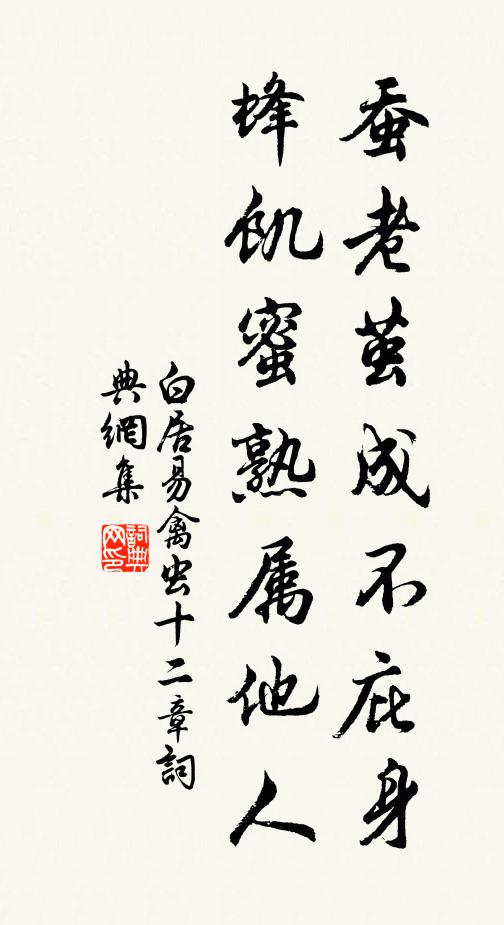 蚕老茧成不庇身
蜂饥蜜熟属他人
白居易禽虫十二章詞
典網集
詞典网印